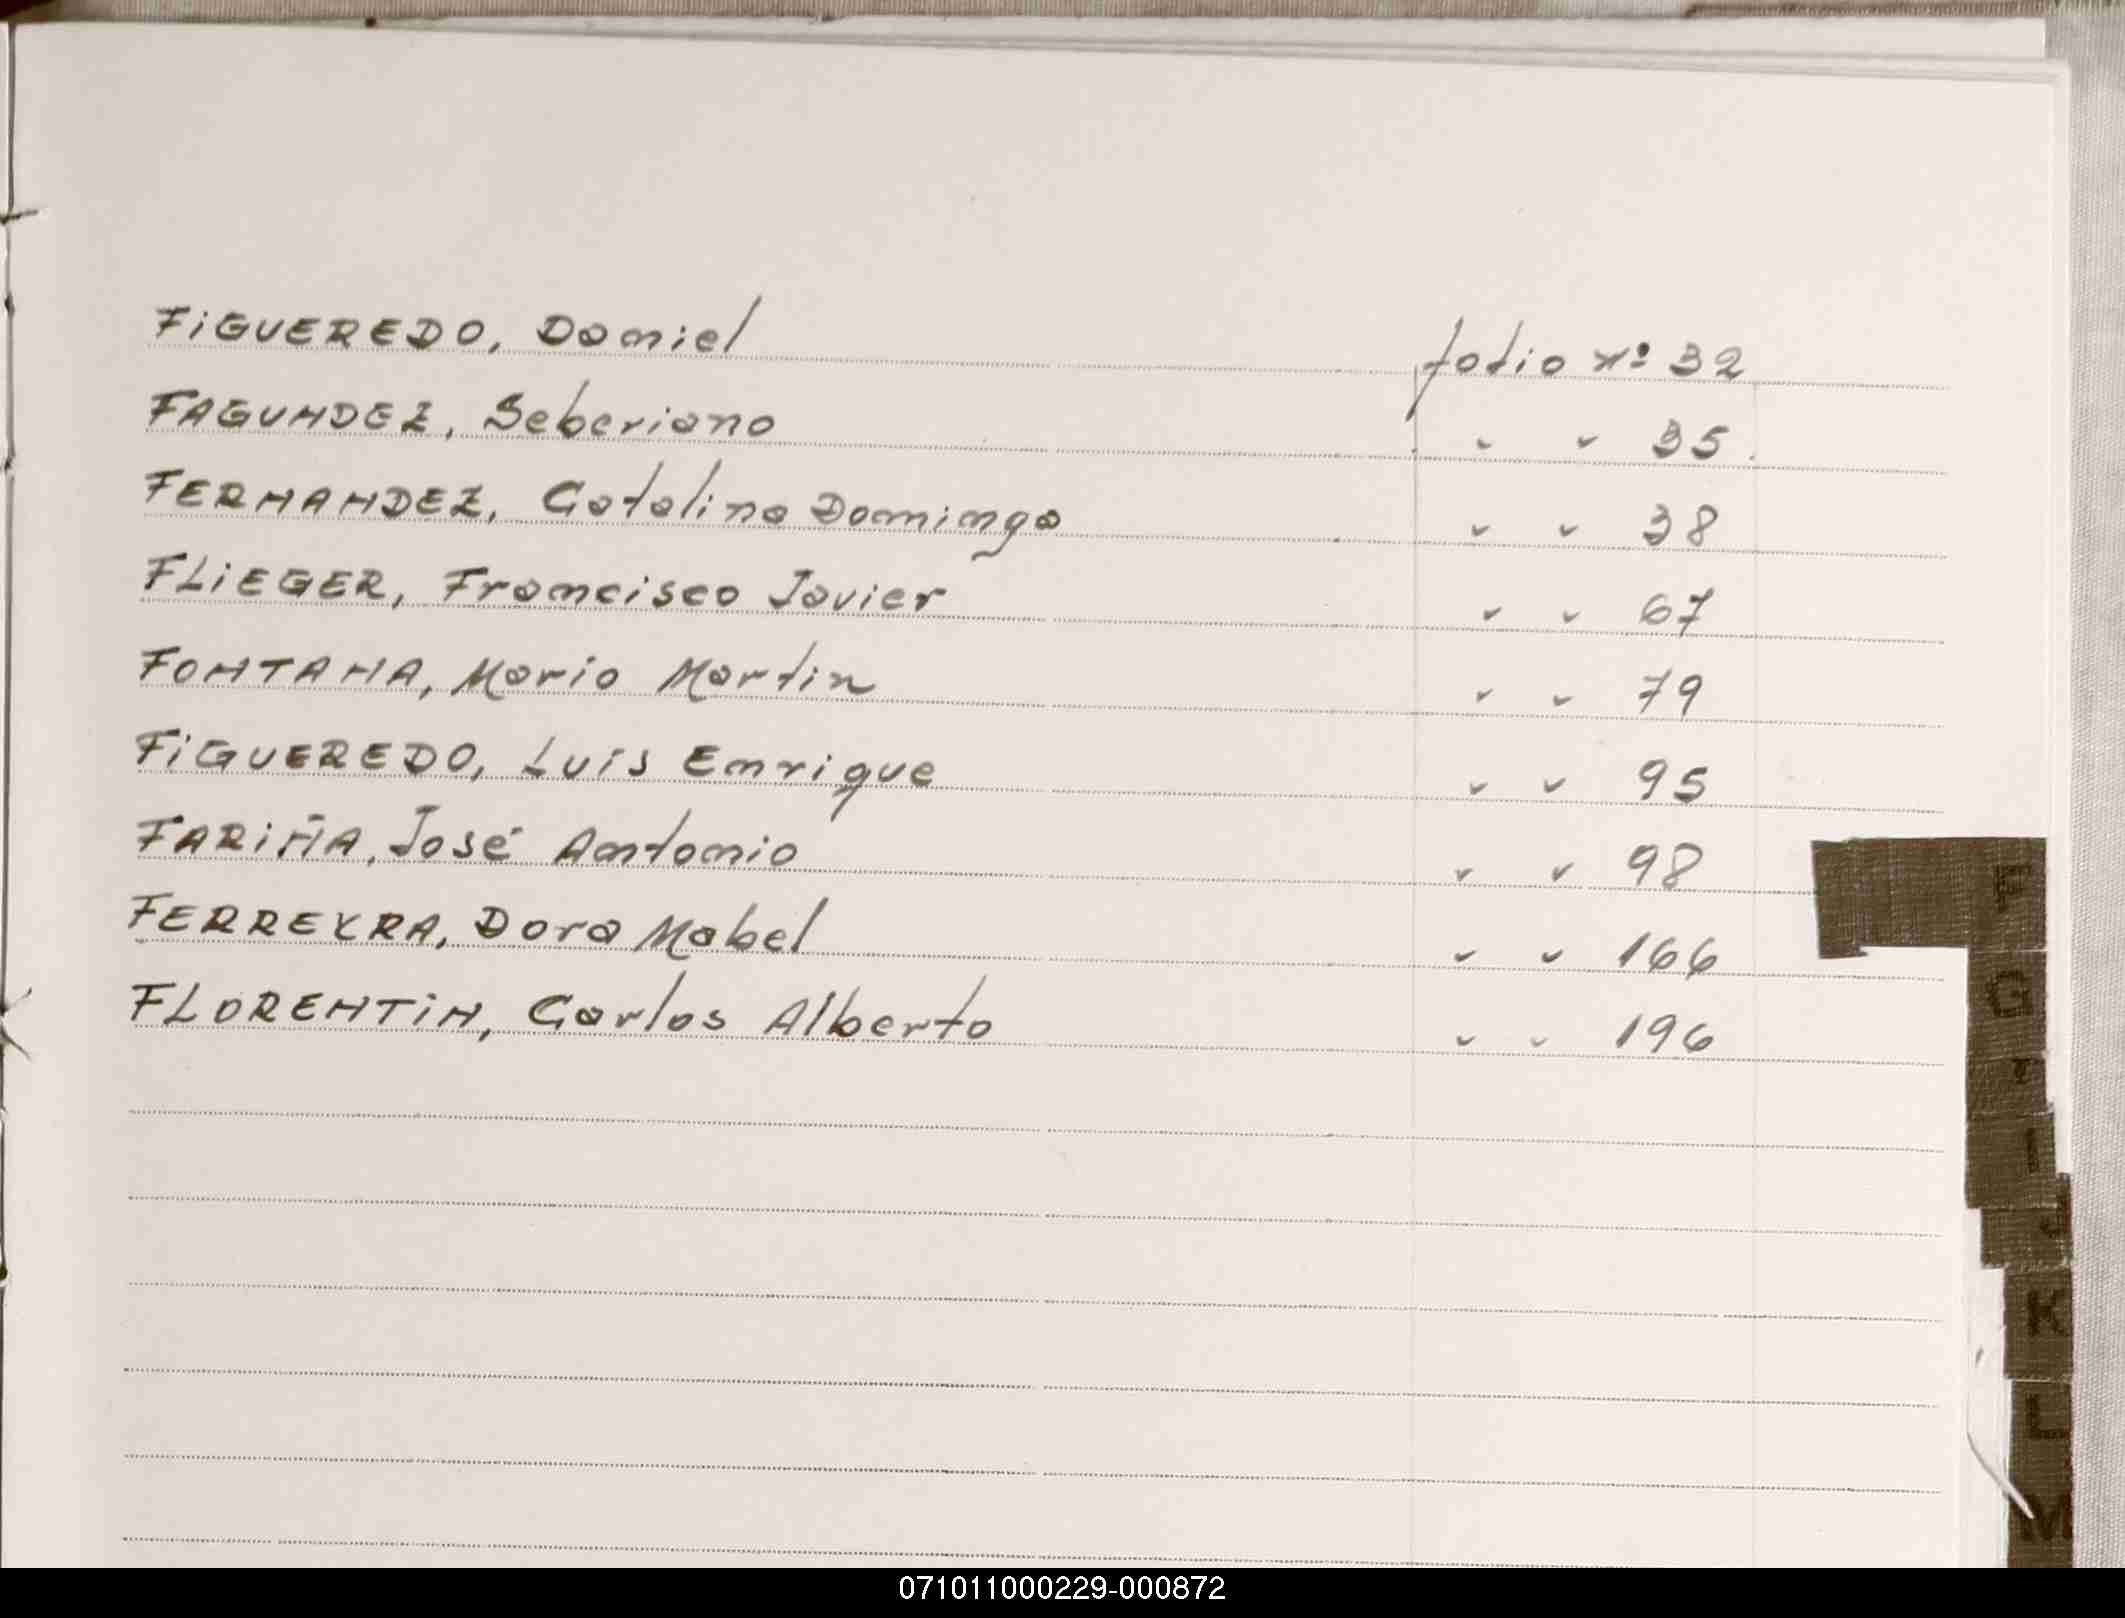 FiGUEREDO, Daniel folio nº 32
FAGUNDEZ, Seberiano " " 35
FERNANDEZ, Catalina Dominga " " 38
FLiEGER, Francisco Javier " " 67
FONTANA, Mario Martin " " 79
FiGUEREDO, Luis Enrique " " 95
FARiÑA, José Antonio " " 98
FERREYRA, Dora Mabel " " 166
FLORENTiN, Carlos Alberto " " 196
F
G
I
J
K
L
M
071011000229-000872